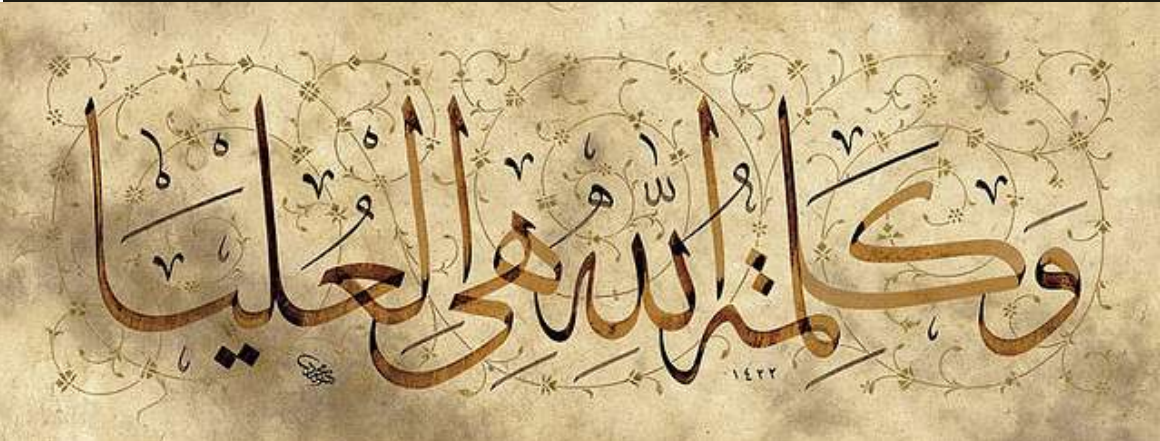 وَكَلِمَةُ اللّٰهِ هِيَ الْعُلْيَا
١٤٢٢